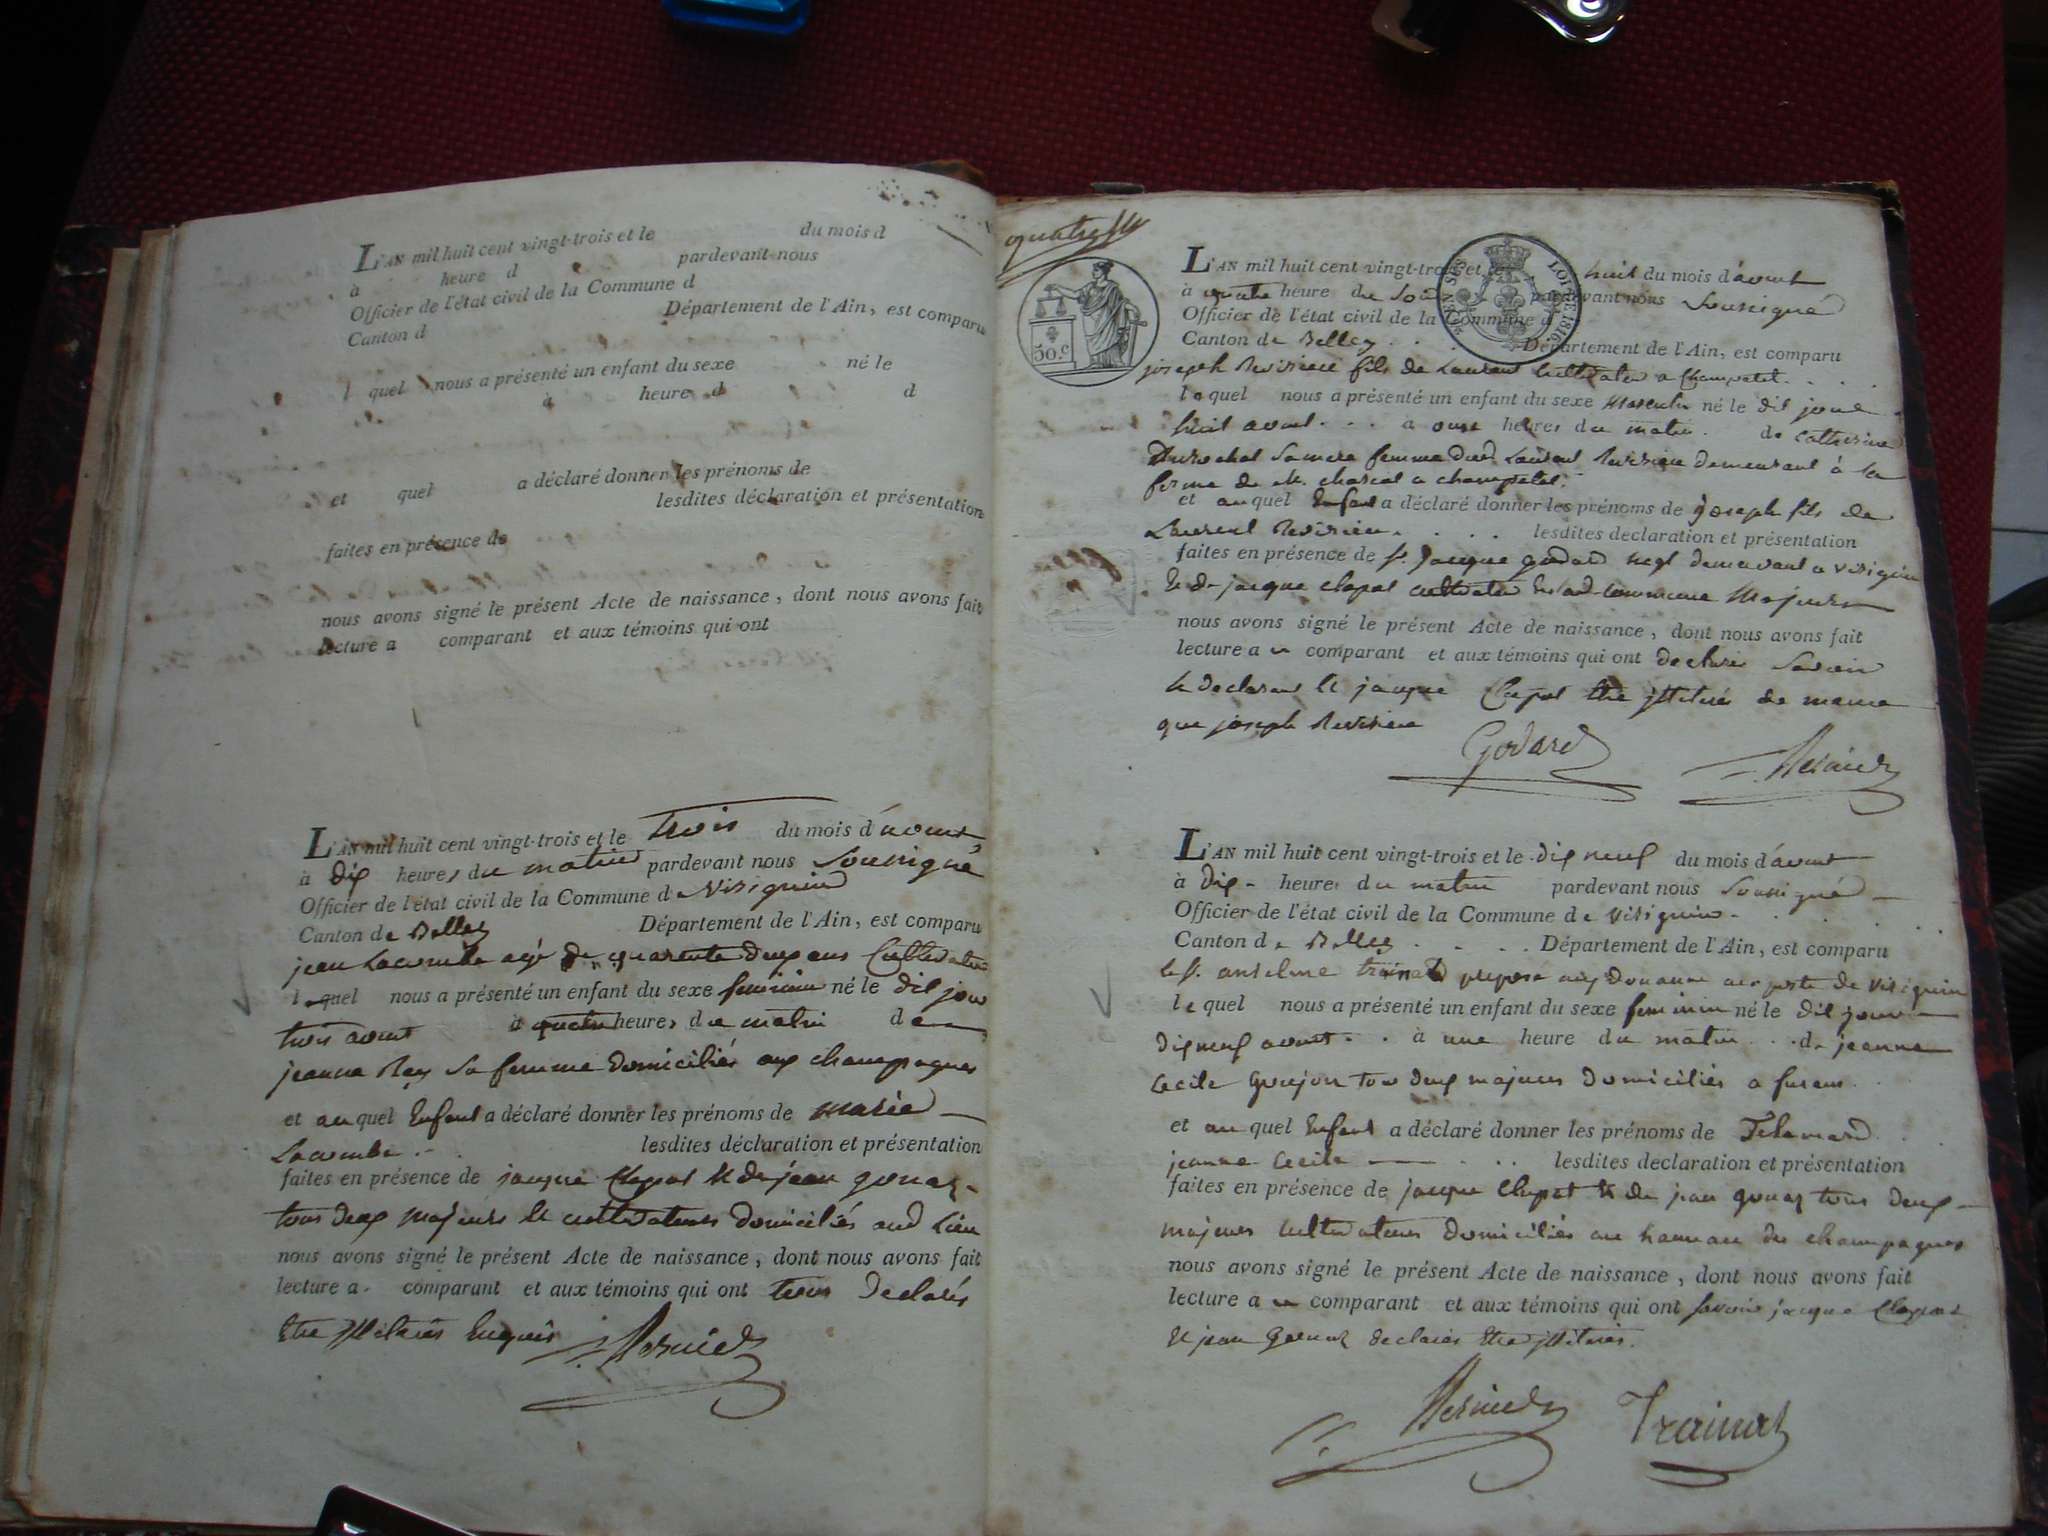 L'AN mil huit cent vingt-trois et le du mois d
à heure d pardevant nous
Officier de l'état civil de la Commune d
Canton d Département de l'Ain, est comparu
l quel nous a présenté un enfant du sexe né le
à heure d d
et quel a déclaré donner les prénoms de
lesdites déclaration et présentation
faites en présence de
nous avons signé le présent Acte de naissance, dont nous avons fait
lecture a comparant et aux témoins qui ont
L'AN mil huit cent vingt-trois et le trois du mois d'aout
à dix heures du matin pardevant nous soussigné
Officier de l'état civil de la Commune de Virignin
Canton de Belley Département de l'Ain, est comparu
jean Lacombe agé de quarente deux ans Cultivateur
lequel nous a présenté un enfant du sexe feminin né le dit jour
trois aout à quatre heures du matin de
jeanne Rey sa femme domiciliés aux champagnes
et au quel Enfant a déclaré donner les prénoms de marie
Lacombe lesdites déclaration et présentation
faites en présence de jacque Clapot & de jean gonaz
tous deux majeurs & cultivateurs domiciliés aud Lieu
nous avons signé le présent Acte de naissance, dont nous avons fait
lecture a comparant et aux témoins qui ont tous declarés
Etre illiterés Enquis
quatre
50.C
LOI DE 1816
L'AN mil huit cent vingt-trois et le huit du mois d'aout
à quatre heure du soir pardevant nous soussigné
Officier de l'état civil de la Commune d
Canton de Belley Département de l'Ain, est comparu
joseph Revirieu fils de Laurent Cultivateur a Champetel
lequel nous a présenté un enfant du sexe masculin né le dit jour
huit aout à onze heures du matin de Catherine
sa mere femme dud Laurent Revirieu demeurant à la
ferme de M. a champetel
et au quel Enfant a déclaré donner les prénoms de joseph fils de
Laurent Revirieu lesdites declaration et présentation
faites en présence de Sr. Jacque godard negt demeurant a virignin
& de jacque Clapot cultivateur en lad Commune Majeurs
nous avons signé le présent Acte de naissance, dont nous avons fait
lecture a u comparant et aux témoins qui ont declarés savoir
le declarant & jacque Clapot Etre illiterés de meme
que joseph Revirieu
Godard
L'AN mil huit cent vingt-trois et le dix neuf du mois d'aout
à dix heures du matin pardevant nous soussigné
Officier de l'état civil de la Commune de virignin
Canton de Belley Département de l'Ain, est comparu
le Sr. anselme trainat preposé aux douanes au poste de virignin
le quel nous a présenté un enfant du sexe feminin né le dit jour
dix neuf aout à une heure du matin de jeanne
Cecile goujon tou deux majeurs domiciliés a
et au quel Enfant a déclaré donner les prénoms de
jeanne Cecile lesdites declaration et présentation
faites en présence de jacque Clapot & de jean gonaz tous deux
majeurs cultivateurs domiciliés au hameau des champagnes
nous avons signé le présent Acte de naissance, dont nous avons fait
lecture a u comparant et aux témoins qui ont savoir jacque Clapot
& jean Gonaz declarés Etre illiterés.
Trainat